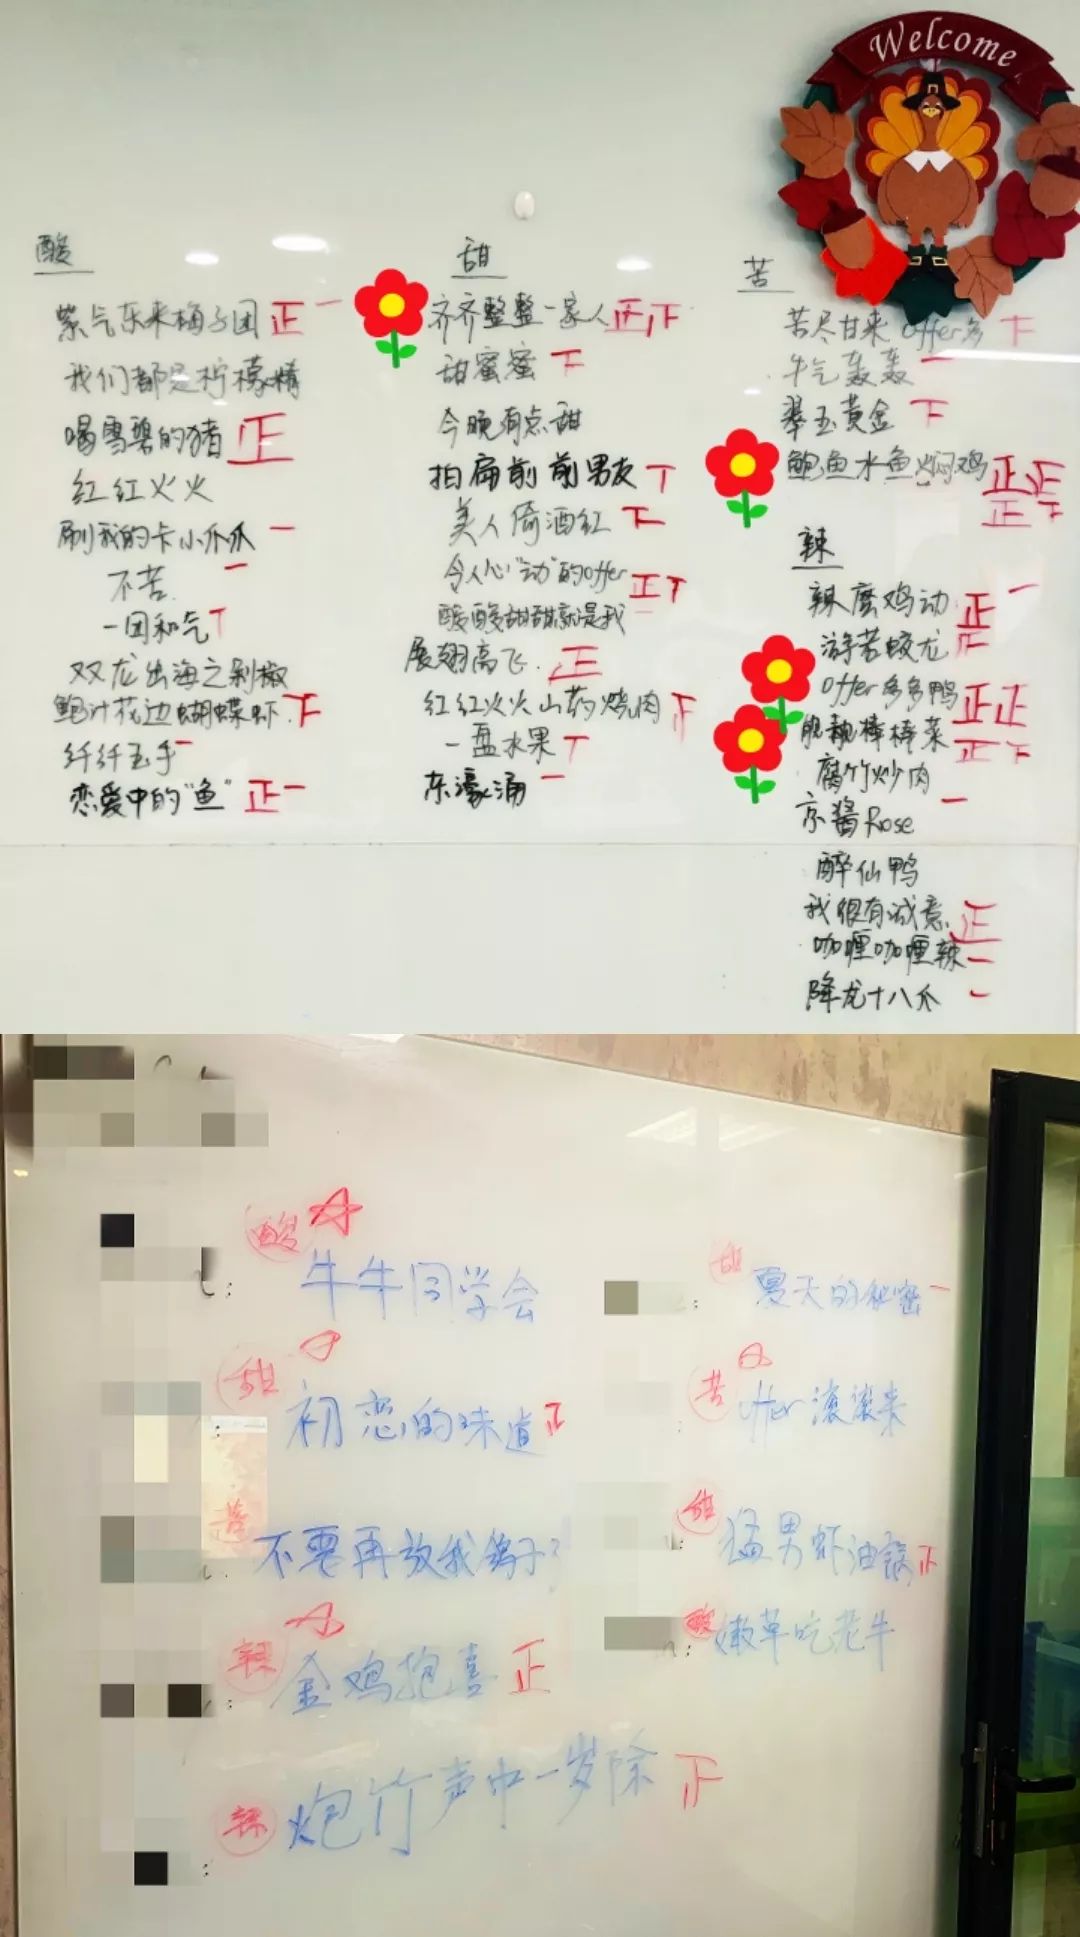 Welcome
酸
紫气东来梅子团 正一
我们都是柠檬精
喝雪碧的猪 正
红红火火
刷我的卡小爪爪 一
不苦 一
一团和气 T
双龙出海之剁椒
鲍汁花边蝴蝶虾 下
纤纤玉手 一
恋爱中的“鱼” 正一
甜
齐齐整整一家人 正下
甜蜜蜜 下
今晚有点甜
拍扁前前男友 T
美人倚酒红 下
令人心“动”的offer 正T
酸酸甜甜就是我
展翅高飞 正
红红火火山药烧肉
一盘水果 T
东濠涌 一
苦
苦尽甘来 offer多 下
牛气轰轰 一
翠玉黄金 下
鲍鱼水鱼焖鸡 正正
正下
辣
辣麽鸡动 正一
游若蛟龙 正
offer多多鸭 正正
棒棒菜 正下
腐竹炒肉
京酱Rose 一
醉仙鸭
我很有诚意 正
咖喱咖喱辣 一
降龙十八爪 一
酸
牛牛同学会
甜
夏天的秘密 一
甜
初恋的味道 正
苦
offer滚滚来
苦
不要再放我鸽子
甜
猛男虾油锅 正
辣
金鸡抱喜 正
酸
嫩草吃老牛
辣
炮竹声中一岁除 正